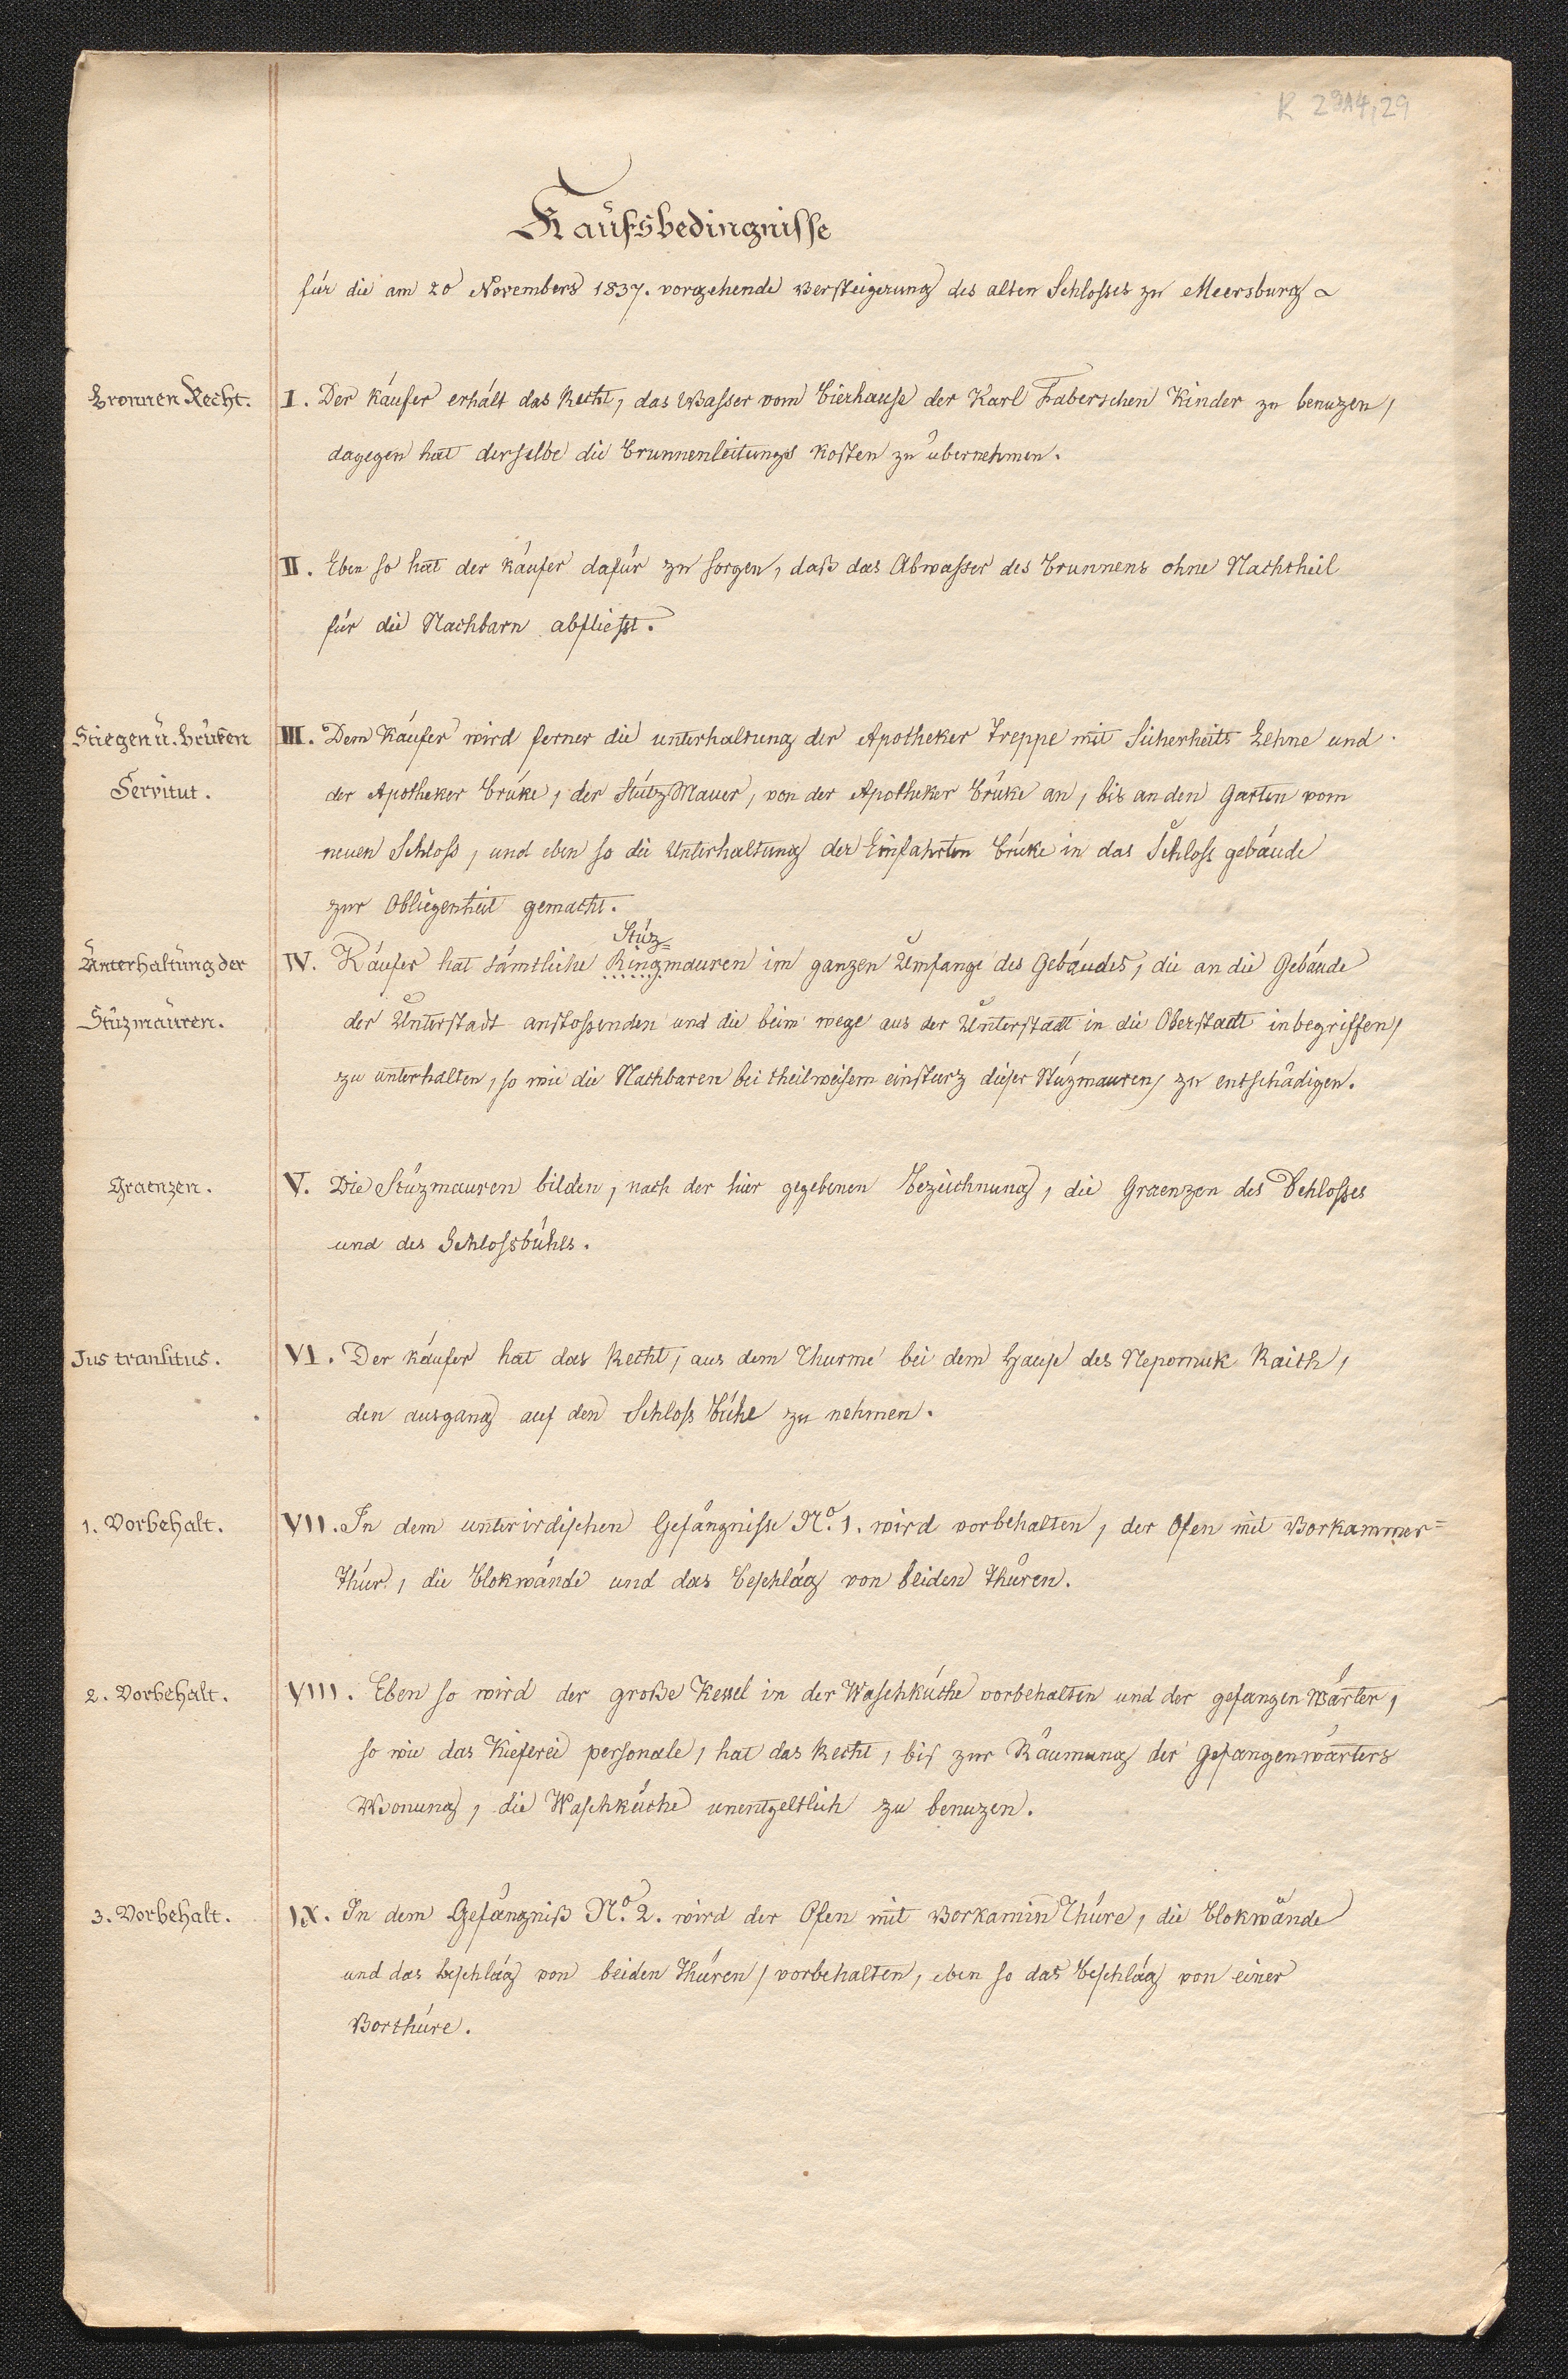 R 2914,29
Kaufsbedingnisse
für die am 20 Novembers 1837. vorgehende Versteigerung des alten Schlosses zu Meersburg
Bronnen Recht.
I. Der Käufer erhält das Recht, das Wasser vom Bierhause der Karl Faberschen Kinder zu benuzen,
dagegen hat derselbe die Brunnenleitungs Kosten zu übernehmen.
II. Eben so hat der Käufer dafür zu sorgen, daß das Abwasser des Brunnens ohne Nachtheil
für die Nachbarn abfliesst.
Stiegen u. Brüken
Servitut.
III. Dem Käufer wird ferner die unterhaltung der Apotheker Treppe mit Sicherheits Lehne und
der Apotheker Brüke, der StützMauer, von der Apotheker Brüke an, bis an den Garten vom
neuen Schloss, und eben so die Unterhaltung der Einfahrten Brücke in das Schloss gebäude
zur Obliegenheit gemacht.
Unterhaltung der
Stüzmauren.
Stüz=
IV. Käufer hat sämtliche Ringmauren im ganzen Umfange des Gebäudes, die an die Gebäude
der Unterstadt anstossenden und die beim wege aus der Unterstadt in die Oberstadt inbegriffen,
zu unterhalten, so wie die Nachbaren bei theilweisem einsturz dieser Stüzmauren, zu entschädigen.
Graenzen.
V. Die Stüzmauren bilden, nach der hier gegebenen Bezeichnung, die Graenzen des Schlosses
und des Schlossbühls.
Jus transitus.
VI. Der Käufer hat das Recht, aus dem Thurme bei dem Hause des Nepomuk Raith,
den ausgang auf den Schloss Bühl zu nehmen.
1. Vorbehalt.
VII. In dem unterirdischen Gefängnisse No. 1. wird vorbehalten, der Ofen mit Vorkammer=
Thür, die Blokwände und das Beschläg von beiden Thüren.
2. Vorbehalt.
VIII. Eben so wird der große Kessel in der Waschküche vorbehalten und der gefangen Wärter,
so wie das Kieferei personale, hat das Recht, bis zur Räumung der Gefangenwärters
Wonung, die Waschküche unentgeltlich zu benuzen.
3. Vorbehalt.
IX. In dem Gefängniß No. 2. wird der Ofen mit Vorkamin Thüre, die Blokwände
und das beschläg von beiden Thüren, vorbehalten, eben so das Beschläg von einer
Vorthüre.